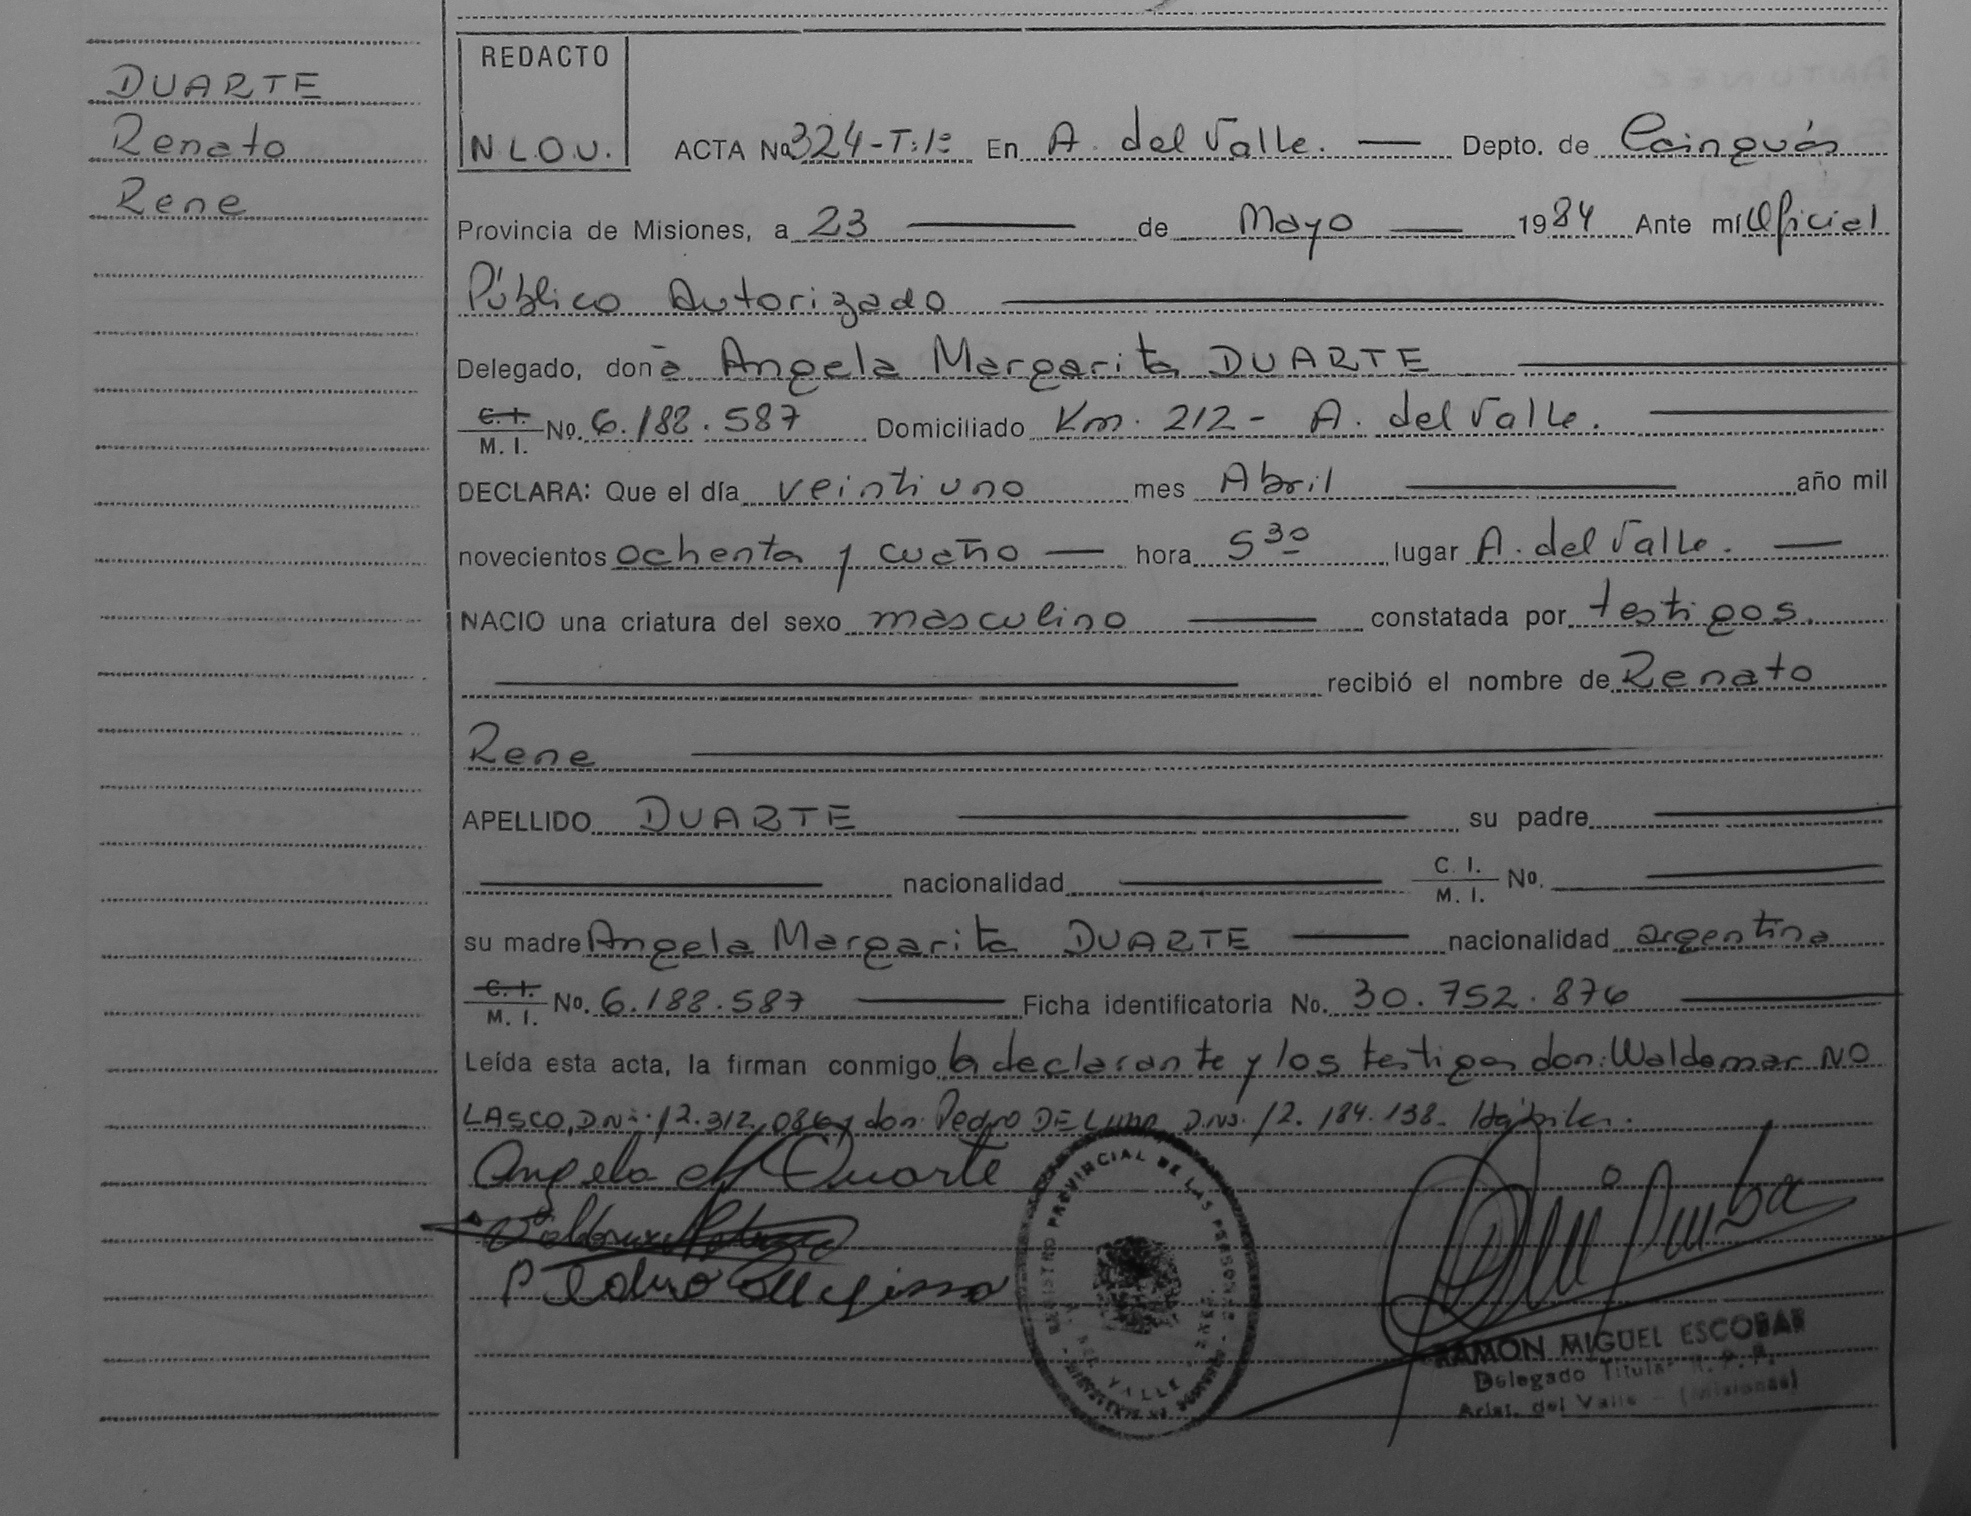 DUARTE
Renato
Rene
REDACTO
N.L.O.U.
ACTA No 324-T:1º En A. del Valle. Depto. de Cainguás
Provincia de Misiones, a 23 de Mayo 1984 Ante mí Oficial
Público Autorizado
Delegado, doña Angela Margarita DUARTE
C. I. / M. I. No. 6.188.587 Domiciliado Km. 212 - A. del Valle.
DECLARA: Que el día veintiuno mes Abril año mil
novecientos ochenta y cuatro hora 5 30 lugar A. del Valle.
NACIO una criatura del sexo masculino constatada por testigos.
recibió el nombre de Renato
Rene
APELLIDO DUARTE su padre
nacionalidad C. I. / M. I. No.
su madre Angela Margarita DUARTE nacionalidad argentina
C. I. / M. I. No. 6.188.587 Ficha identificatoria No. 30.752.876
Leída esta acta, la firman conmigo la declarante y los testigos don: Waldemar NO
LASCO, DNI: 12.312.086 y don Pedro DE LIMA DNI. 12.184.138. Hábiles.
Angela M Duarte
REGISTRO PROVINCIAL DE LAS PERSONAS
DEL VALLE
RAMON MIGUEL ESCOBAR
Delegado Titular R. P. P.
Arist. del Valle - (Misiones)